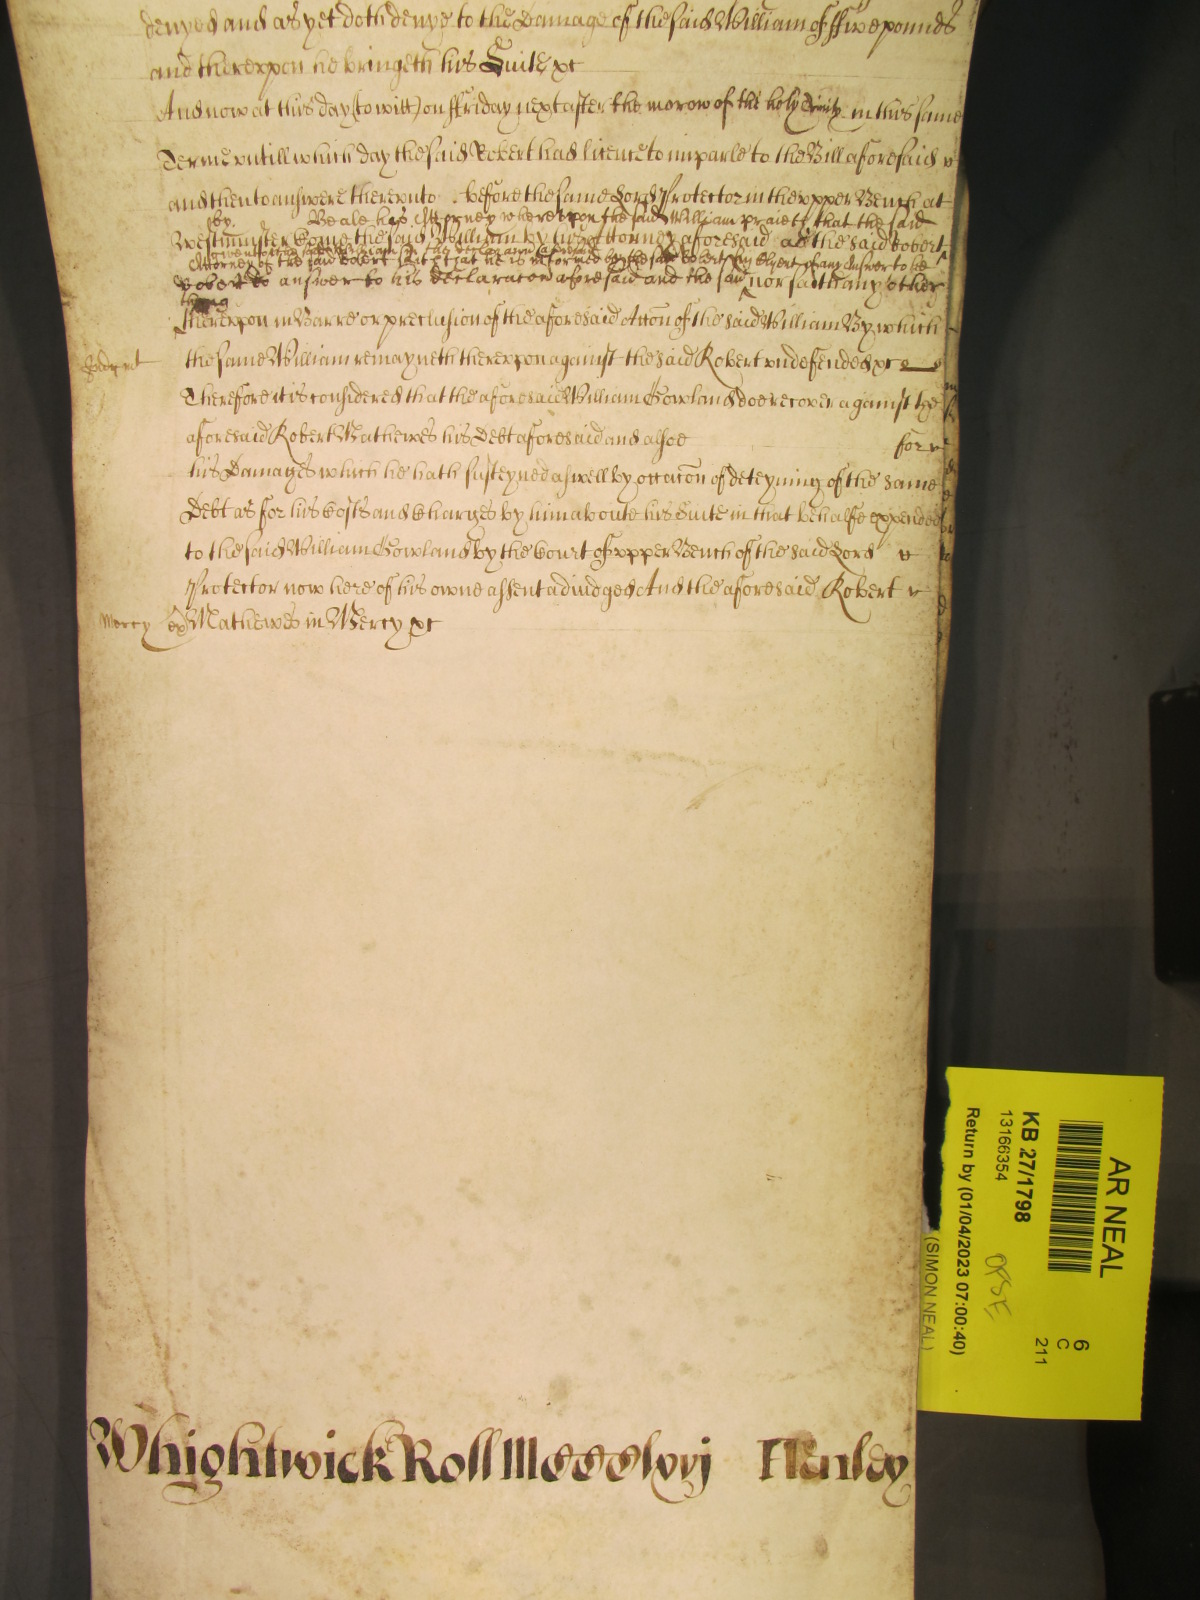 denyed and as yet doth denye to the Damage of the said William of ffive pounds
and thereupon he bringeth his Suite &c
And now at this day (to witt) on ffriday next after the morow of the holy Trinity in this same
Terme untill which day the said Robert had licence to imparle to the Bill aforesaid
and then to answere thereunto before the same Lord Protector in the upper Bench at
by Beale his Attorney whereupon the said William praieth that the said
Westminster come the said William by his Attorney aforesaid as the said Robert
Attorney of the said Robert saith that he is not informed by the said Robert his Clyent of any Answer to be
Robert do answer to his declaracon aforesaid and the said nor saith any other
thing
thereupon in Barre or preclusion of the aforesaid Accon of the said William By which
the same William remayneth thereupon against the said Robert undefended &c
Judgmt
Therefore it is considered that the aforesaid William Gowland doe recover against the
aforesaid Robert Mathewes his Debt aforesaid and alsoe for
his Damages which he hath susteyned aswell by occacon of deteyning of the same
Debt as for his Costs and Charges by him aboute his Suite in that behalfe expended
to the said William Gowland by the Court of upper Bench of the said Lord
Protector now here of his owne assent adiudged And the aforesaid Robert
Mercy Mathewes in Mercy &c
Whightwick Roll MCCClxvj Henley
AR NEAL
6
C
211
KB 27/1798
13166354
Return by (01/04/2023 07:00:40)
(SIMON NEAL)